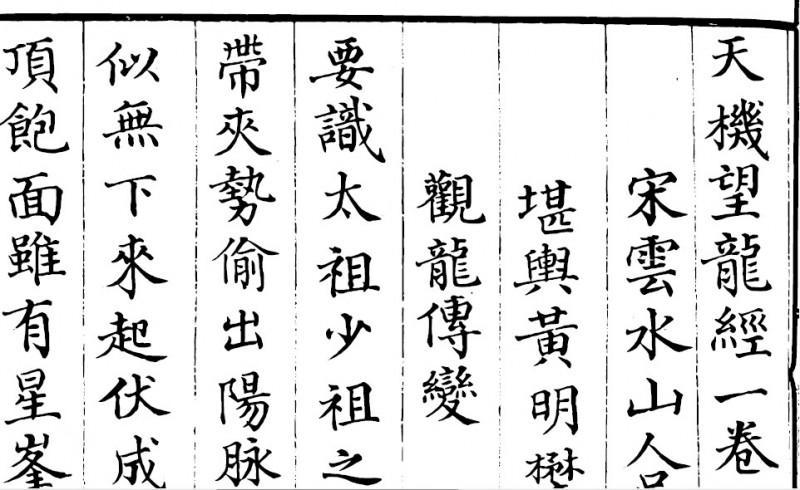 天機望龍經一卷
宋雲水山
堪輿黃明
觀龍傳變
要識太祖少祖之
帶夾勢偷出陽脉
似無下來起伏成
頂飽面雖有星峯